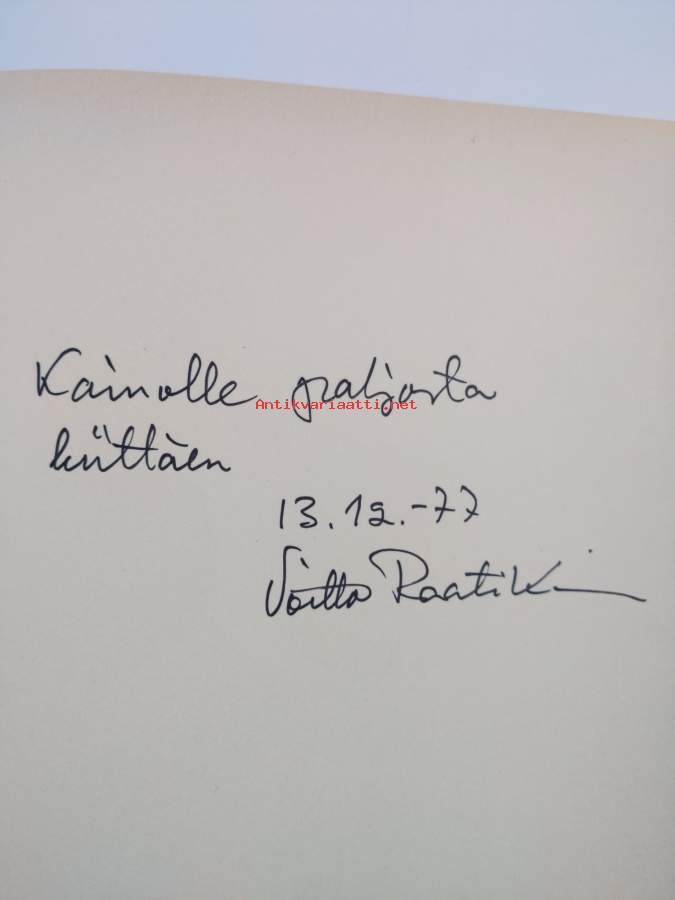 Kainolle paljosta
Antikvariaatti.net
kiittäen
13.12.-77
Voitto Raatik